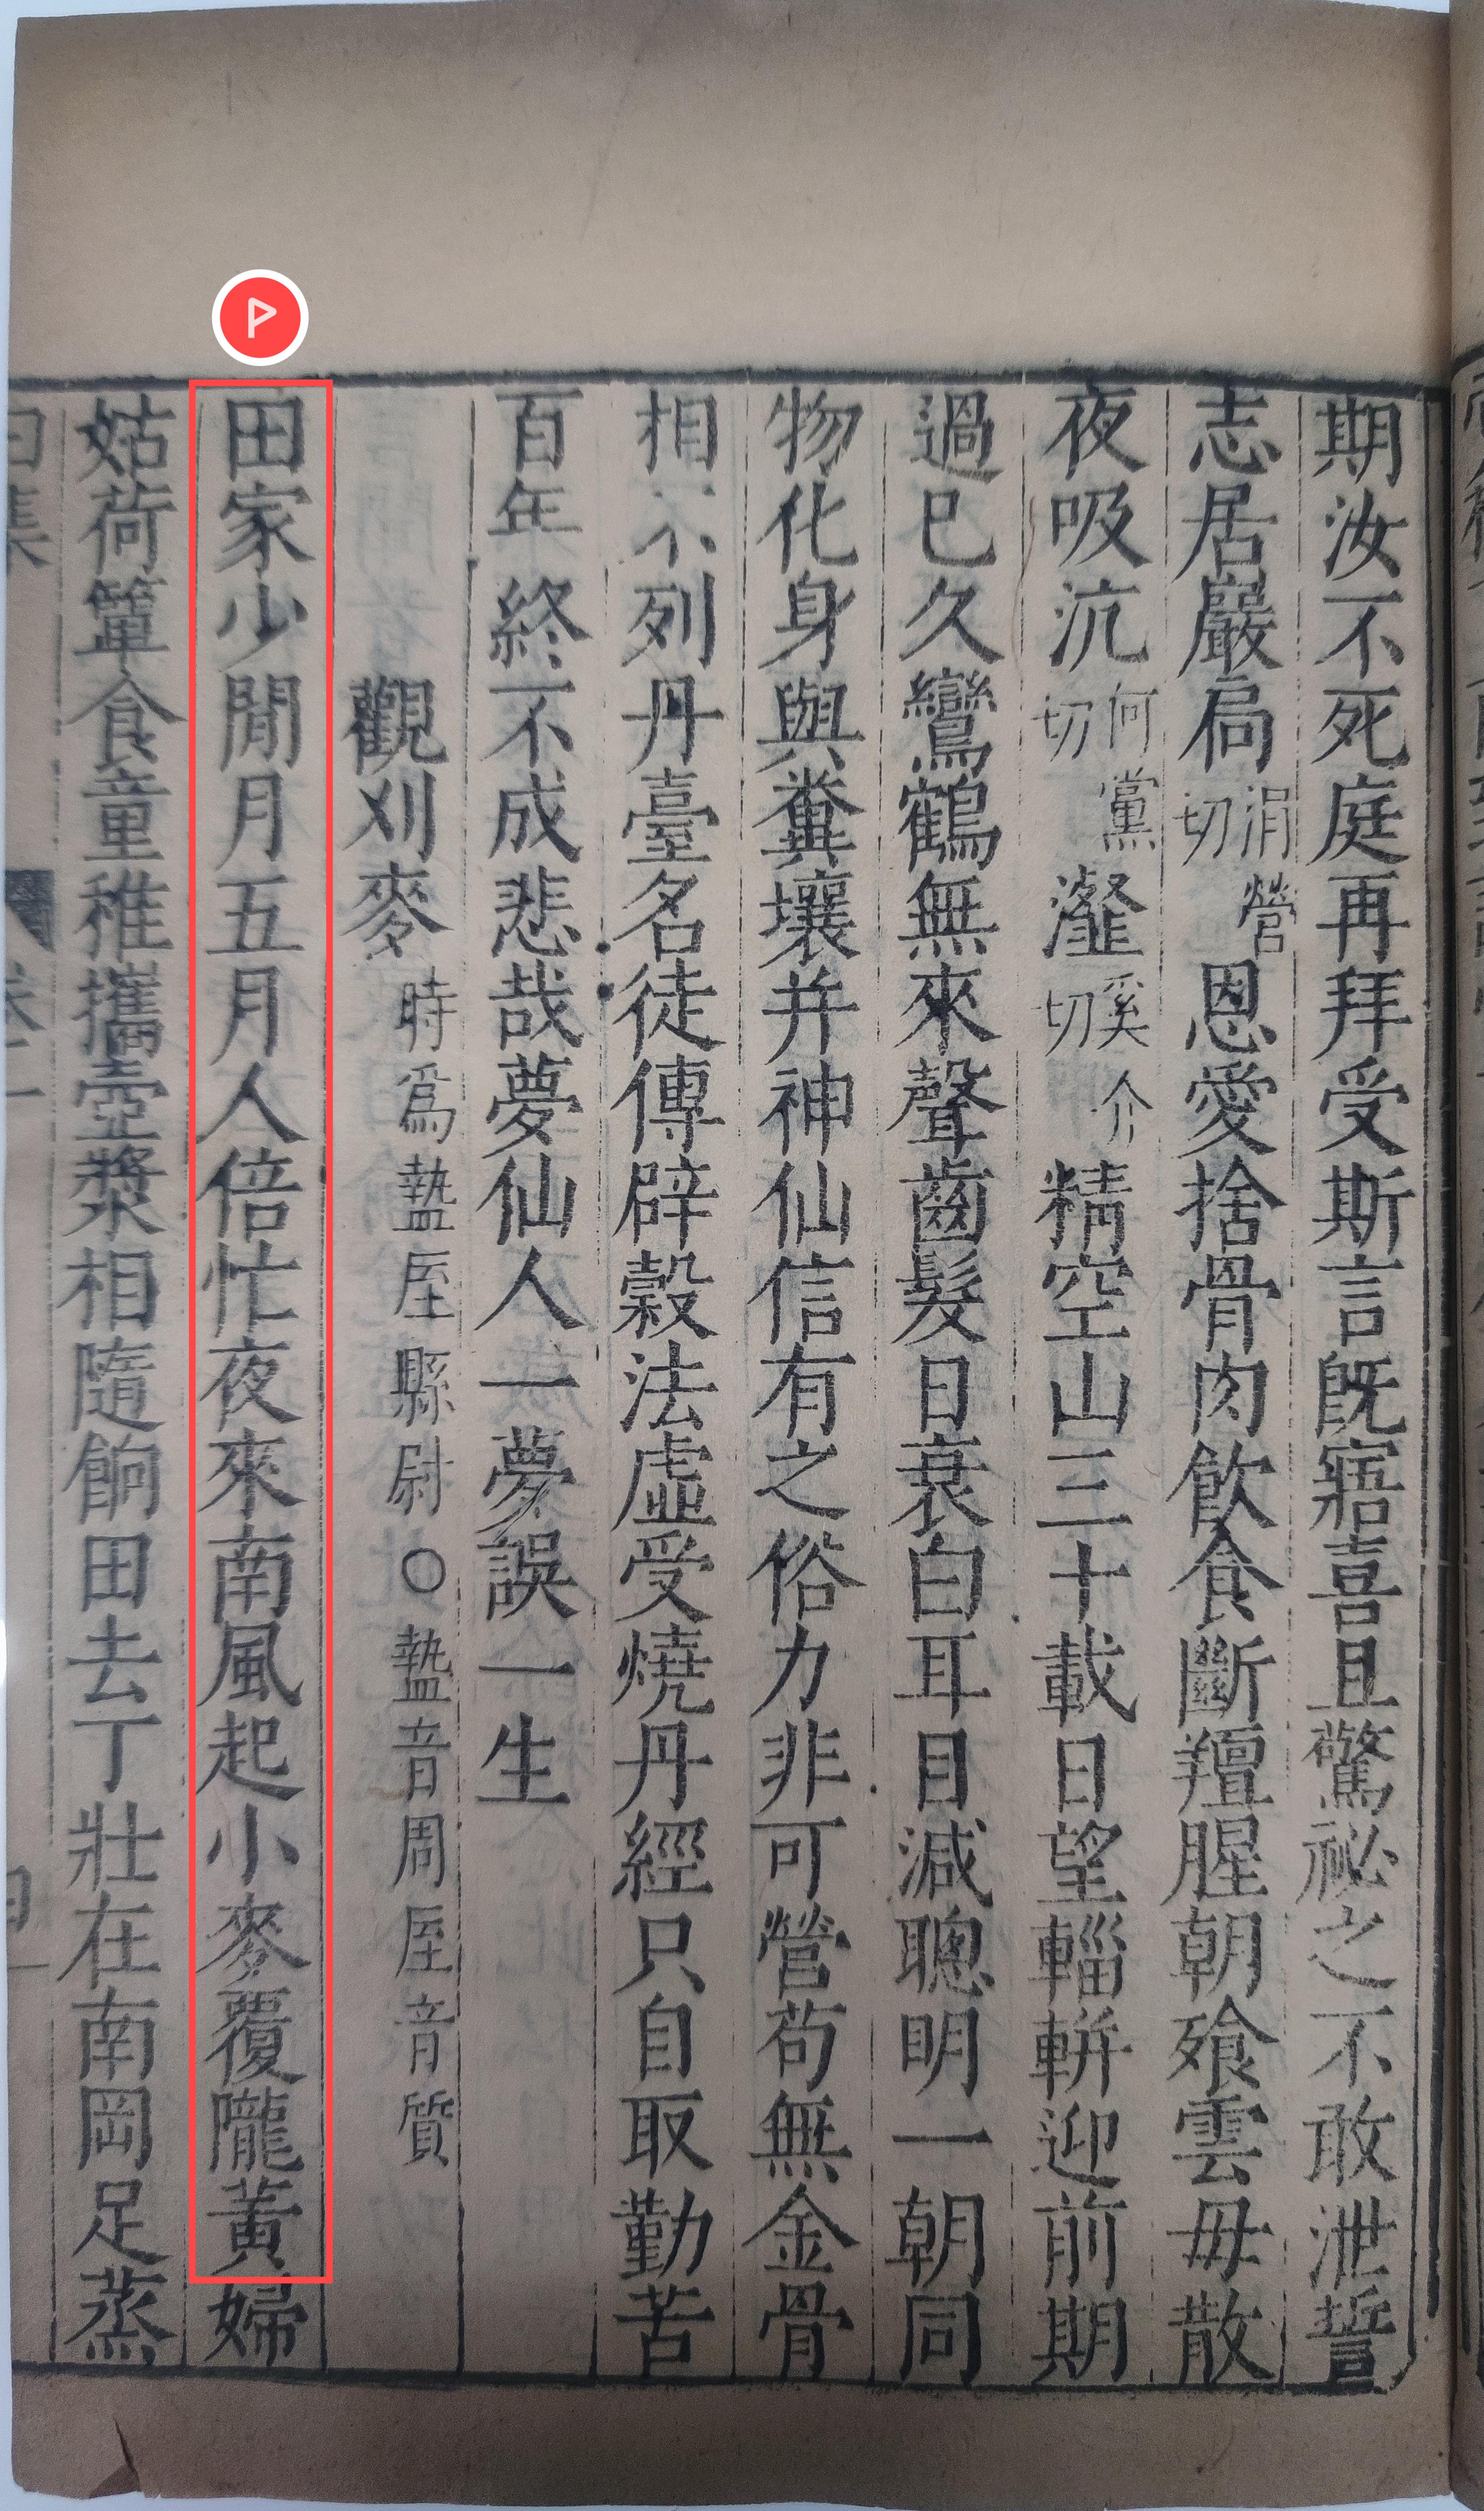 期汝不死庭再拜受斯言既寤喜且驚祕之不敢泄誓
志居嚴扃涓營切恩愛捨骨肉飲食斷羶腥朝飱雲毋散
夜吸沆何黨切瀣奚介切精空山三十載日望輜軿迎前期
過已久鸞鶴無來聲齒髮日衰白耳目減聰明一朝同
物化身與糞壤并神仙信有之俗力非可營苟無金骨
相不列丹臺名徒傳辟穀法虛受燒丹經只自取勤苦
百年終不成悲哉夢仙人一夢誤一生
觀刈麥時爲盩厔縣尉○盩音周厔音質
田家少閒月五月人倍忙夜來南風起小麥覆隴黃婦
姑荷簞食童稚攜壺漿相隨餉田去丁壯在南岡足蒸